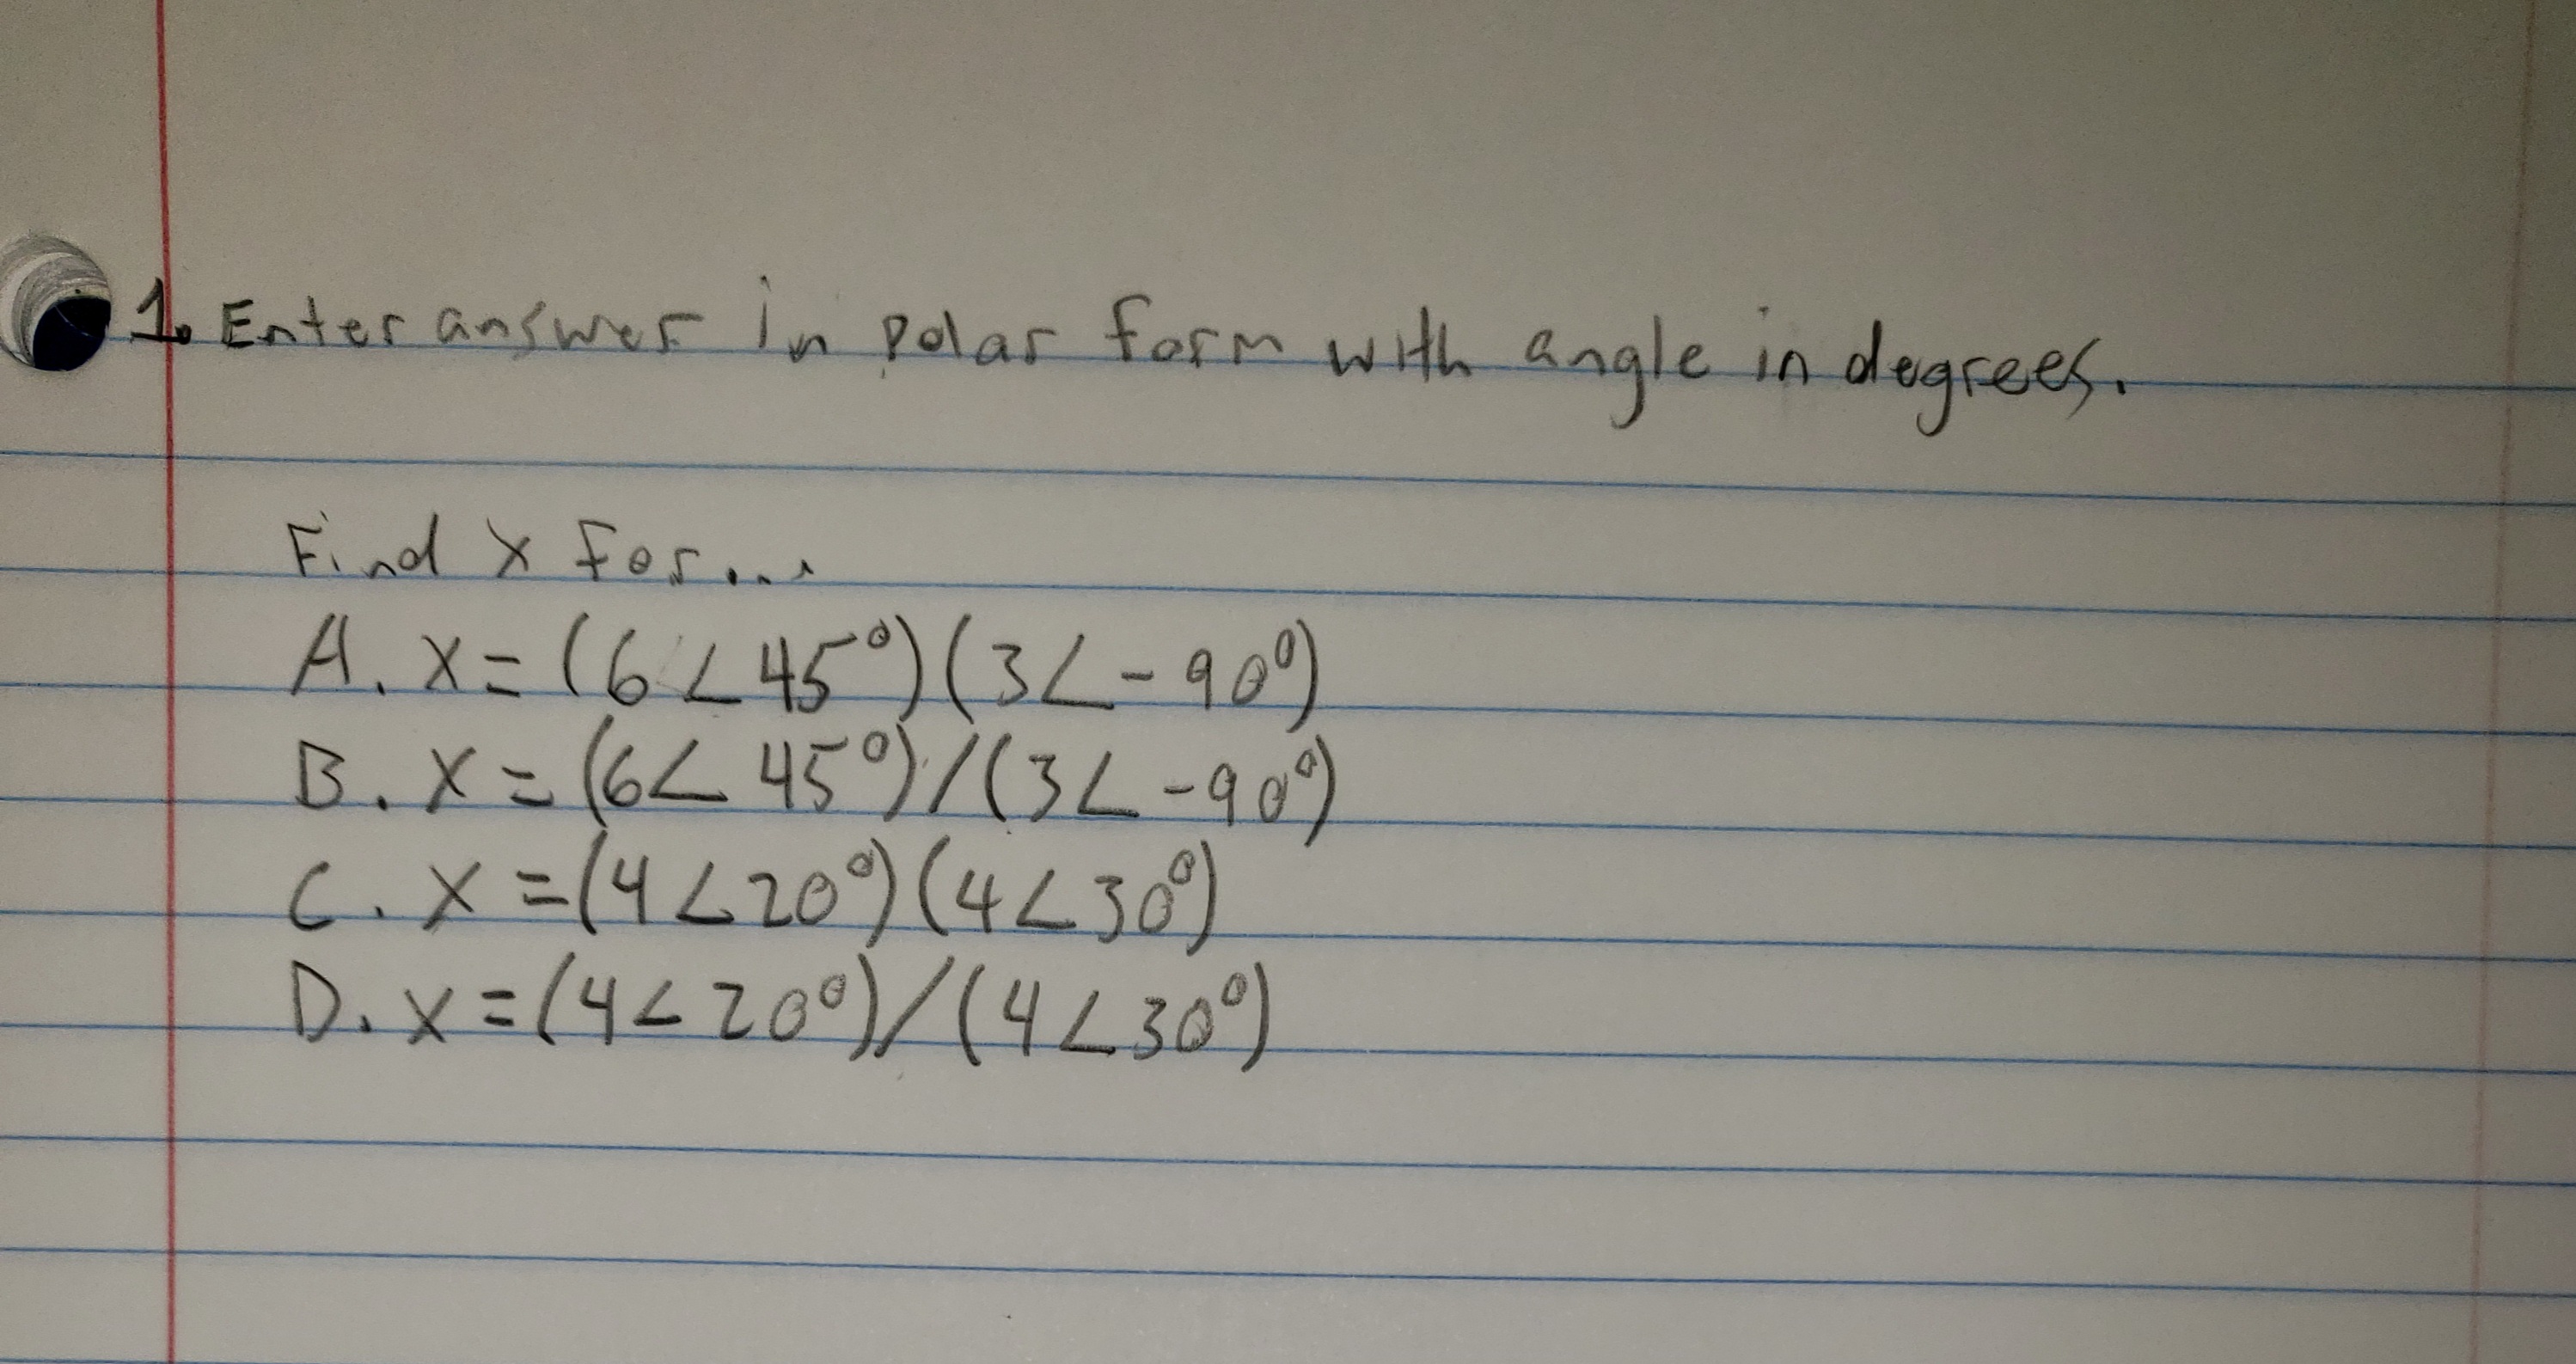 1. Enter answer in polar form with angle in degrees.
Find x for...
A. x = (6∠45°)(3∠-90°)
B. x = (6∠45°)/(3∠-90°)
C. x = (4∠20°)(4∠30°)
D. x = (4∠20°)/(4∠30°)